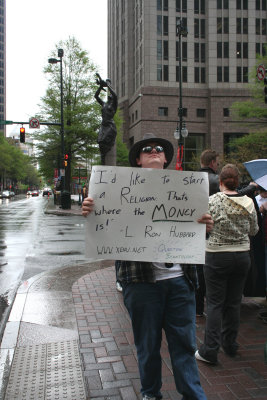 I'd like to start
a Religion. Thats
where the Money
is!" - L Ron Hubbard
www.xenu.net - Question
Scientology